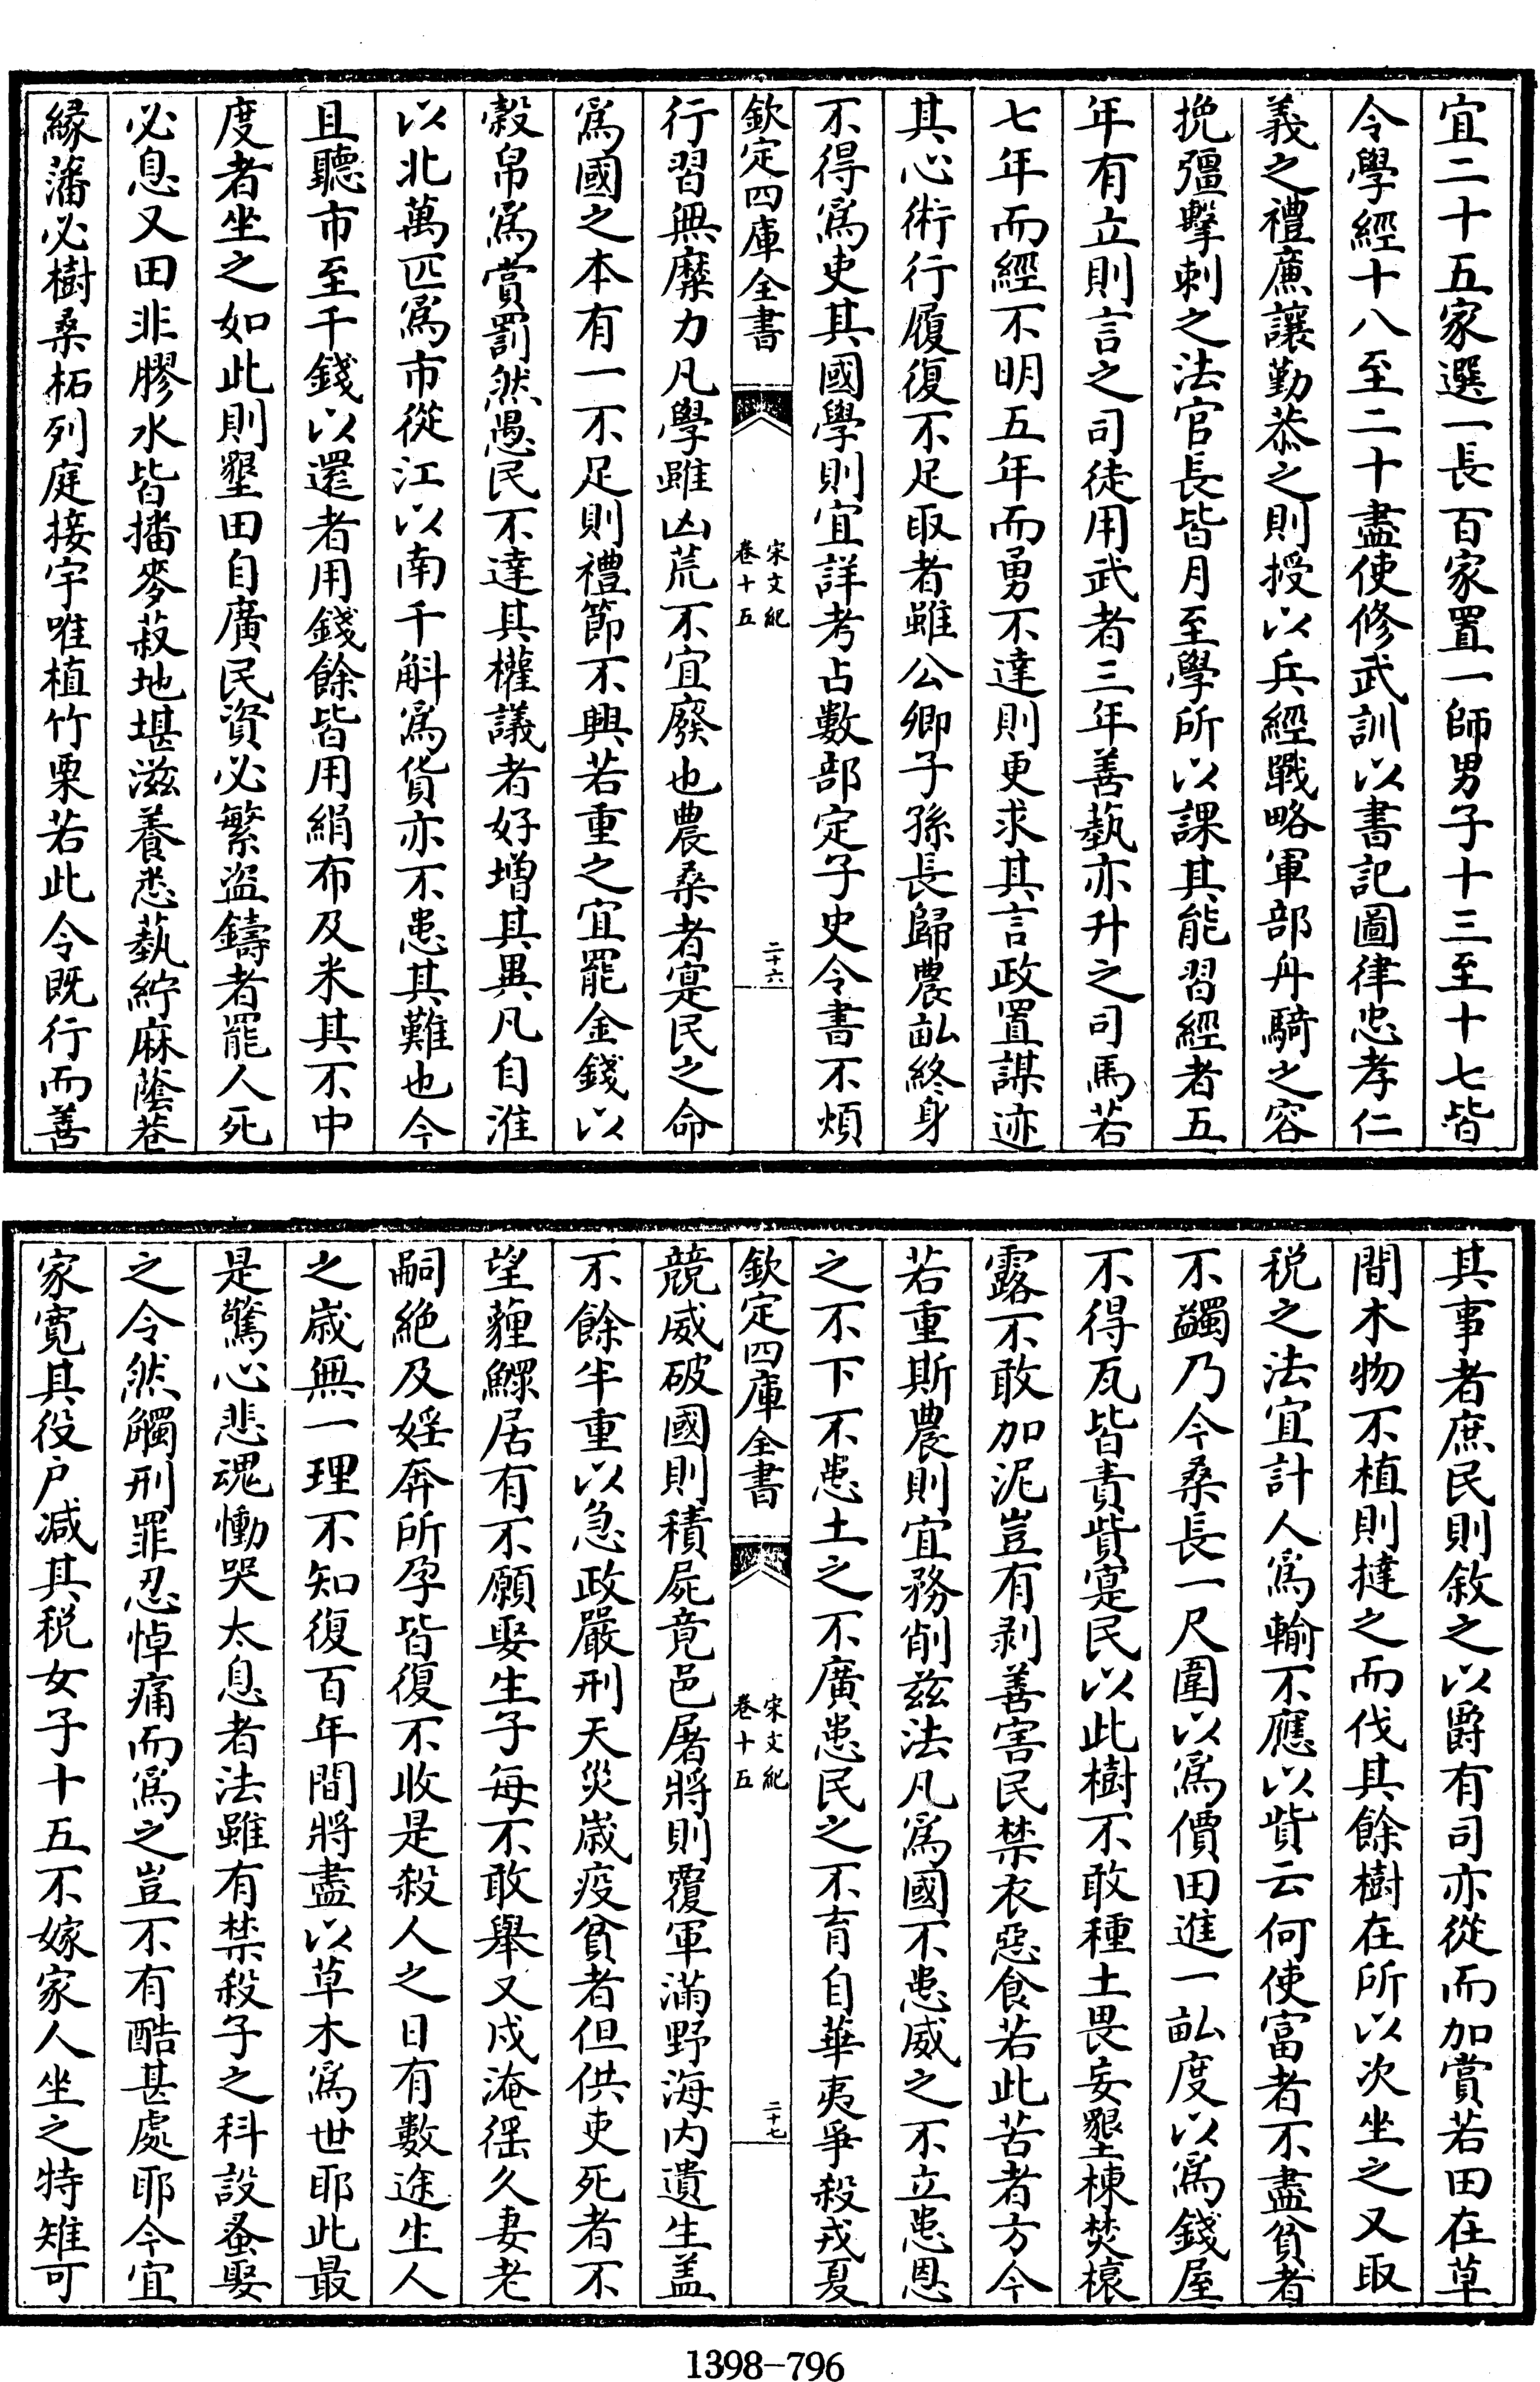 宜二十五家選一長百家置一師男子十三至十七皆
令學經十八至二十盡使修武訓以書記圖律忠孝仁
義之禮廉讓勤恭之則授以兵經戰略軍部舟騎之容
挽彊擊刺之法官長皆月至學所以課其能習經者五
年有立則言之司徒用武者三年善藝亦升之司馬若
七年而經不明五年而勇不達則更求其言政置謀迹
其心術行履復不足取者雖公卿子孫長歸農畝終身
不得爲吏其國學則宜詳考占數部定子史令書不煩
欽定四庫全書
宋文紀
卷十五
二十六
行習無糜力凡學雖凶荒不宜廢也農桑者寔民之命
爲國之本有一不足則禮節不興若重之宜罷金錢以
穀帛爲賞罰然愚民不達其權議者好增其異凡自淮
以北萬匹爲市從江以南千斛爲貨亦不患其難也今
且聽市至千錢以還者用錢餘皆用絹布及米其不中
度者坐之如此則墾田自廣民資必繁盜鑄者罷人死
必息又田非膠水皆播麥菽地堪滋養悉藝紵麻蔭巷
緣藩必樹桑柘列庭接宇唯植竹栗若此令既行而善
其事者庶民則敘之以爵有司亦從而加賞若田在草
間木物不植則撻之而伐其餘樹在所以次坐之又取
税之法宜計人爲輸不應以貲云何使富者不盡貧者
不蠲乃今桑長一尺圍以爲價田進一畝度以爲錢屋
不得瓦皆責貲寔民以此樹不敢種土畏妄墾棟焚榱
露不敢加泥豈有剥善害民禁衣惡食若此苦者方今
若重斯農則宜務削兹法凡爲國不患威之不立患恩
之不下不患土之不廣患民之不育自華夷爭殺戎夏
欽定四庫全書
宋文紀
卷十五
二十七
競威破國則積屍竟邑屠將則覆軍滿野海内遺生盖
不餘半重以急政嚴刑天災歲疫貧者但供吏死者不
望薶鰥居有不願娶生子每不敢舉又戍淹徭久妻老
嗣絶及婬奔所孕皆復不收是殺人之日有數途生人
之歲無一理不知復百年間將盡以草木爲世耶此最
是驚心悲魂慟哭太息者法雖有禁殺子之科設蚤娶
之令然觸刑罪忍悼痛而爲之豈不有酷甚處耶今宜
家寛其役户減其税女子十五不嫁家人坐之特雉可
1398-796